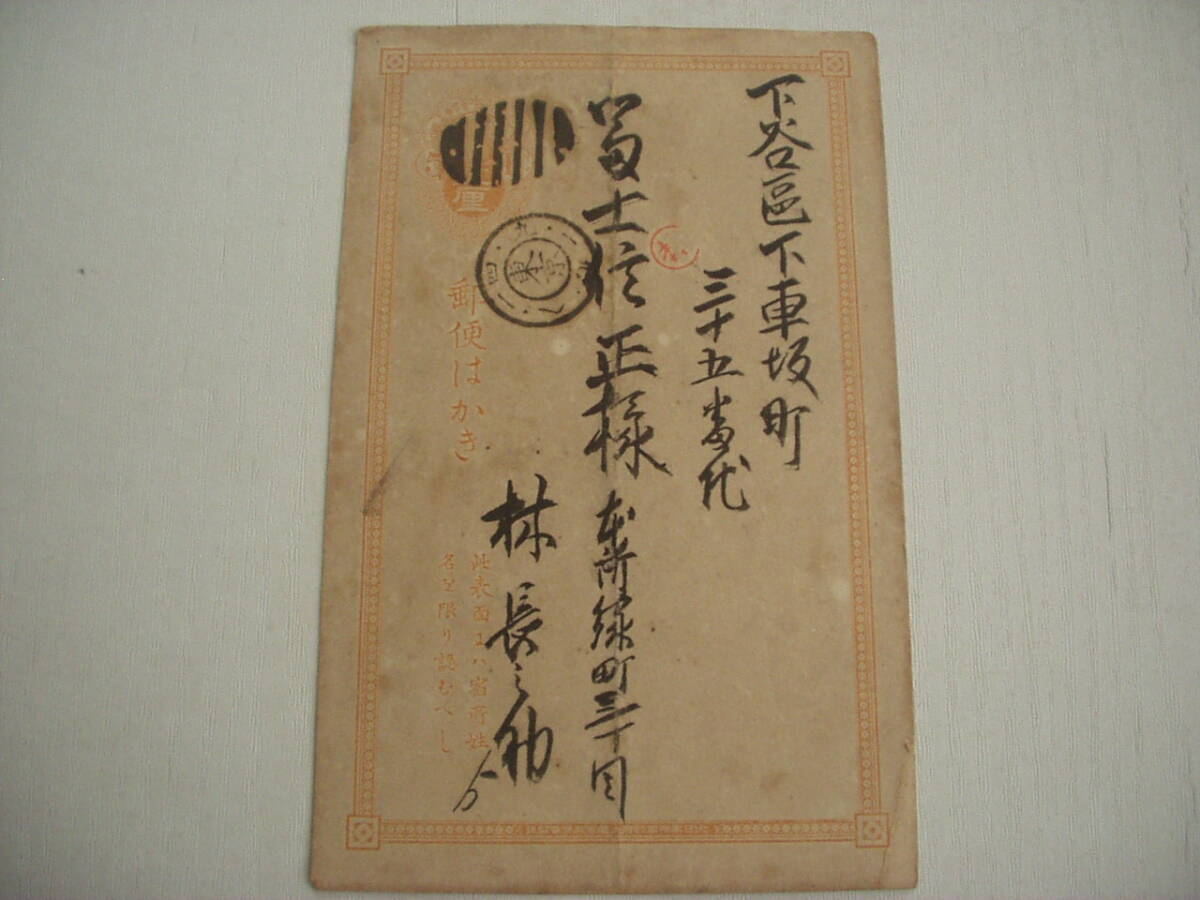 下谷區下車坂町
三十五番地
冨士信正様
本所緑町三丁目
林長之助
郵便はかき
此表面には宿所姓
名を限り認むへし
厘